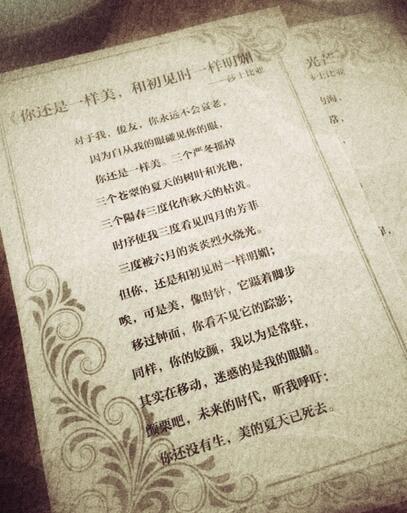 《你还是一样美，和初见时一样明媚》
——莎士比亚
对于我，俊友，你永远不会衰老，
因为自从我的眼碰见你的眼，
你还是一样美。三个严冬摇掉
三个苍翠的夏天的树叶和光艳，
三个阳春三度化作秋天的枯黄。
时序使我三度看见四月的芳菲
三度被六月的炎炎烈火烧光。
但你，还是和初见时一样明媚；
唉，可是美，像时针，它蹑着脚步
移过钟面，你看不见它的踪影；
同样，你的姣颜，我以为是常驻，
其实在移动，迷惑的是我的眼睛。
颤栗吧，未来的时代，听我呼吁：
你还没有生，美的夏天已死去。
光芒
海，
常，